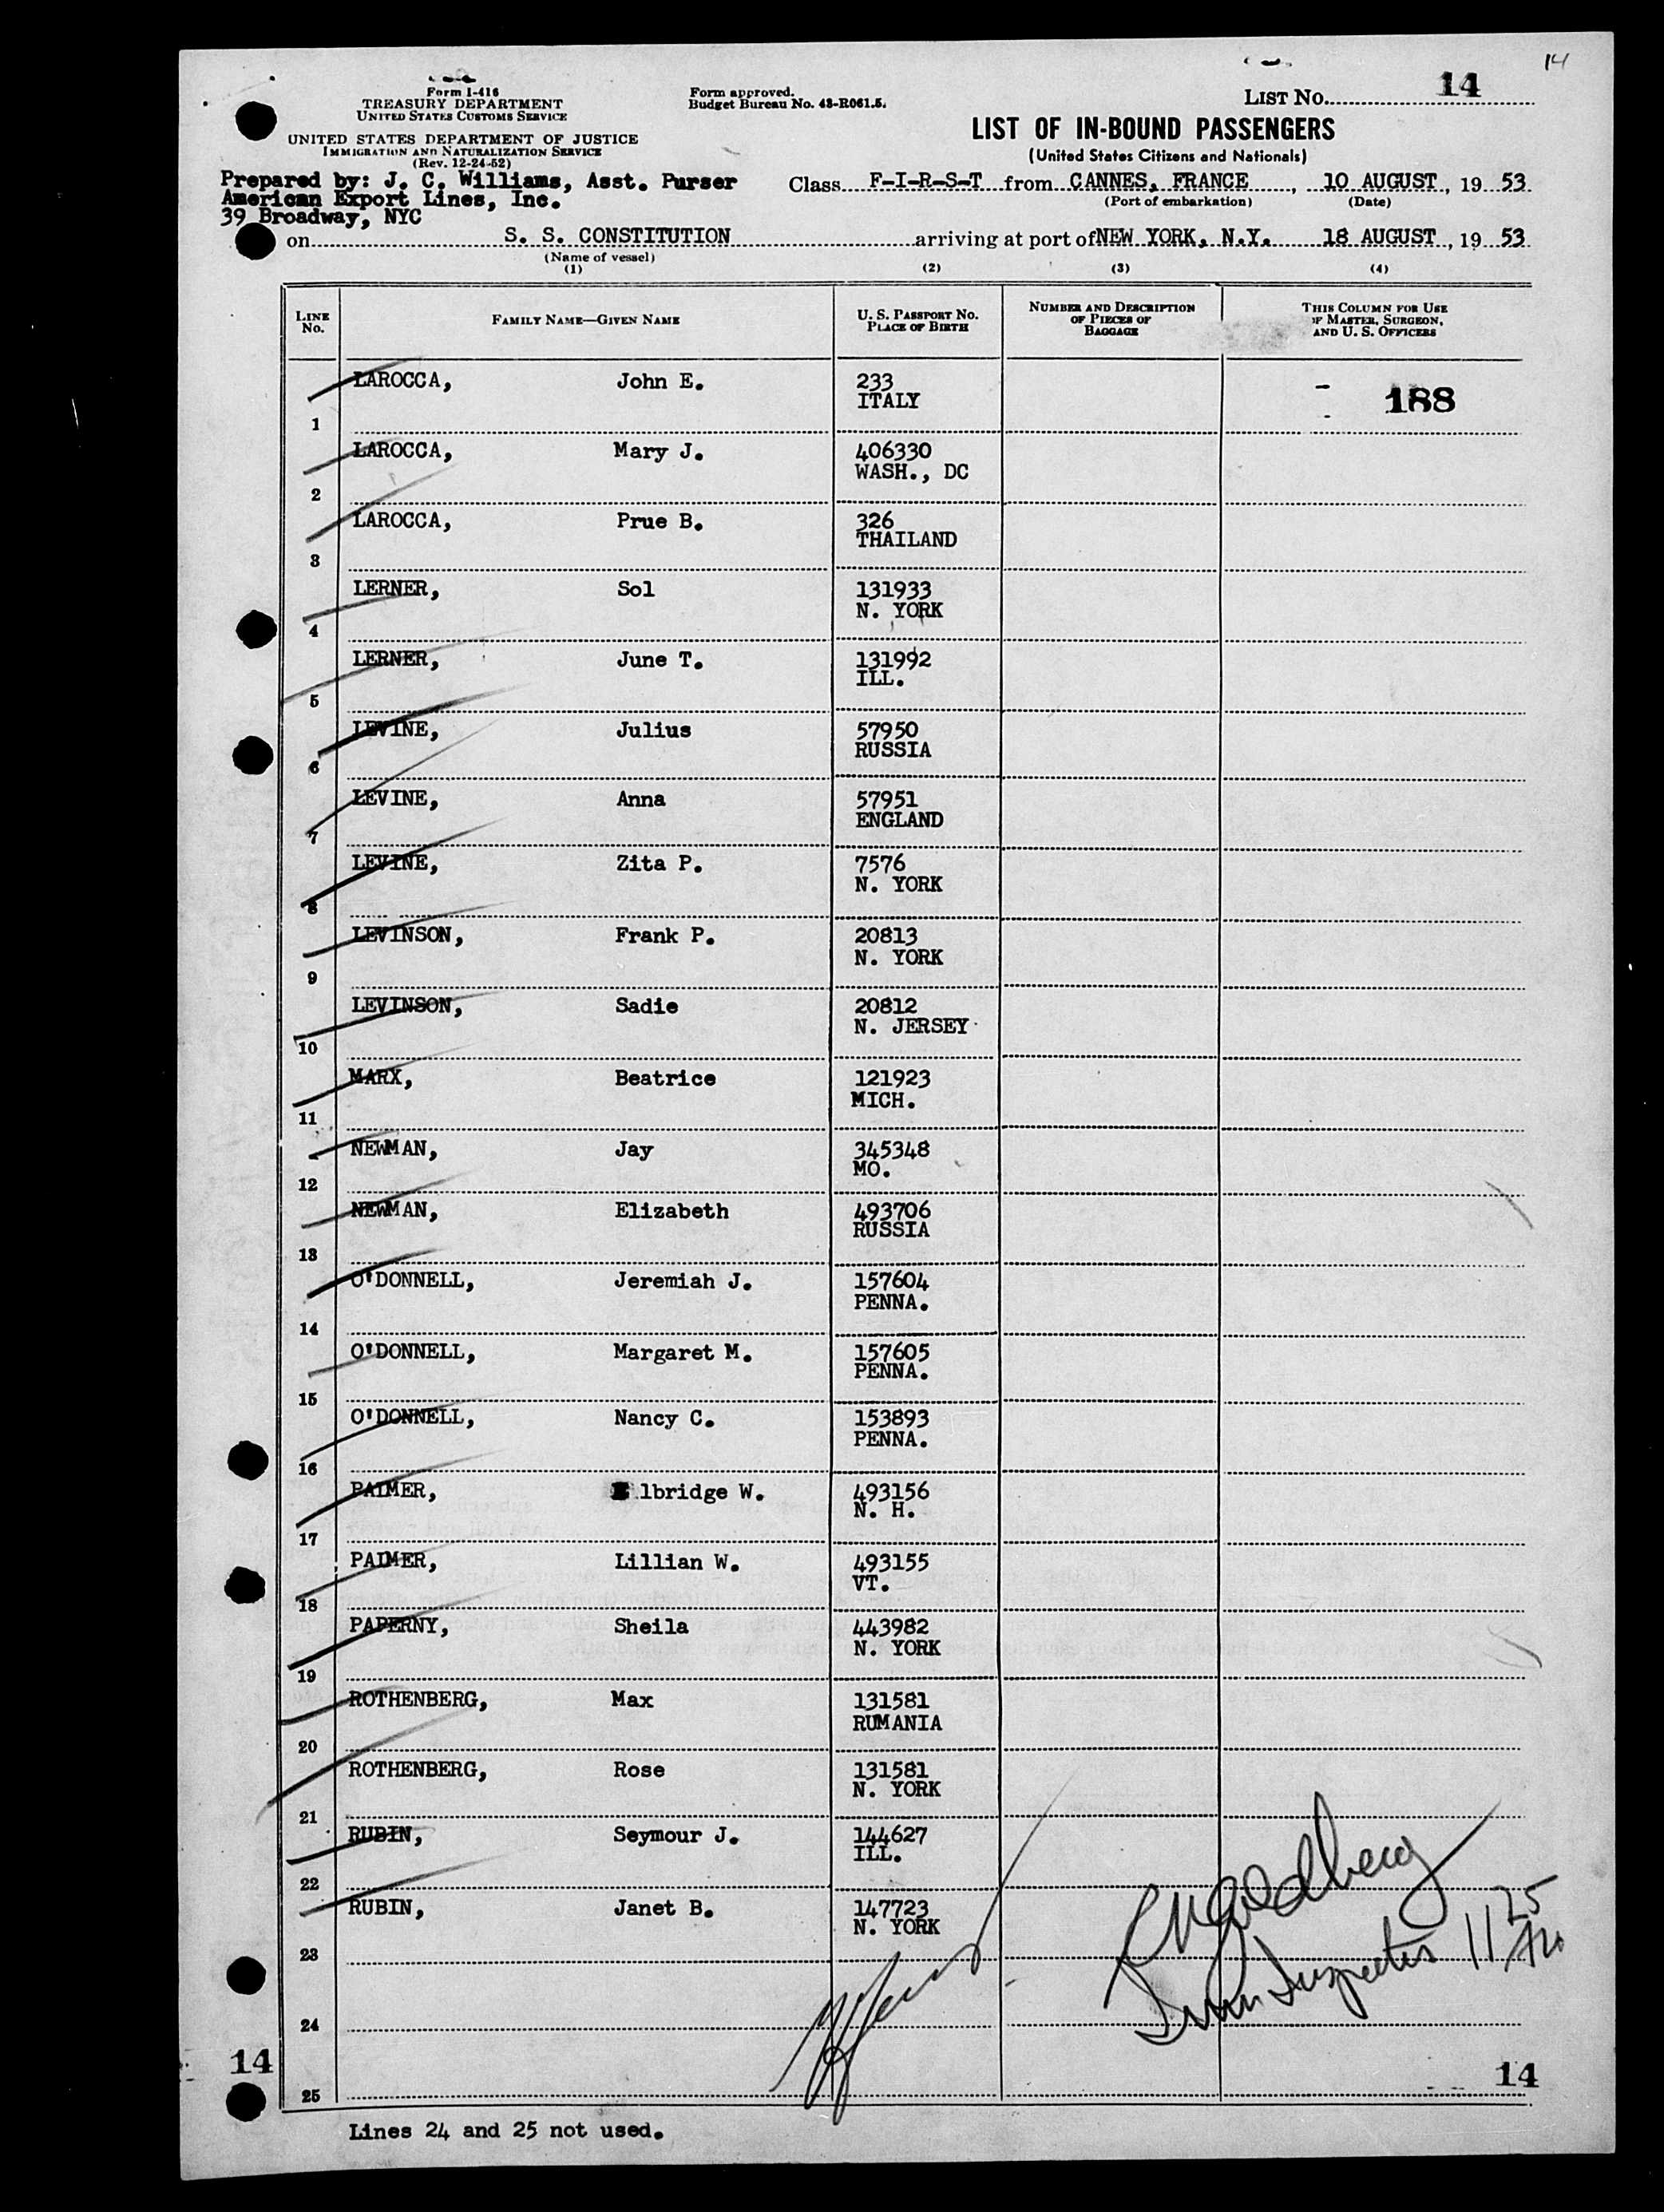 14
Form I-416
TREASURY DEPARTMENT
UNITED STATES CUSTOMS SERVICE
UNITED STATES DEPARTMENT OF JUSTICE
IMMIGRATION AND NATURALIZATION SERVICE
(Rev. 12-24-52)
Form approved.
Budget Bureau No. 43-R061.5.
LIST NO. 14
LIST OF IN-BOUND PASSENGERS
(United States Citizens and Nationals)
Prepared by: J. C. Williams, Asst. Purser
American Export Lines, Inc.
39 Broadway, NYC
Class F-I-R-S-T from CANNES, FRANCE, 10 AUGUST, 19 53.
(Port of embarkation) (Date)
on S. S. CONSTITUTION arriving at port of NEW YORK, N.Y. 18 AUGUST, 19 53
(Name of vessel)
(1) (2) (3) (4)
LINE No. FAMILY NAME—GIVEN NAME U. S. PASSPORT NO. PLACE OF BIRTH NUMBER AND DESCRIPTION OF PIECES OF BAGGAGE THIS COLUMN FOR USE OF MASTER, SURGEON, AND U. S. OFFICERS
1 LAROCCA, John E. 233 ITALY 188
2 LAROCCA, Mary J. 406330 WASH., DC
3 LAROCCA, Prue B. 326 THAILAND
4 LERNER, Sol 131933 N. YORK
5 LERNER, June T. 131992 ILL.
6 LEVINE, Julius 57950 RUSSIA
7 LEVINE, Anna 57951 ENGLAND
8 LEVINE, Zita P. 7576 N. YORK
9 LEVINSON, Frank P. 20813 N. YORK
10 LEVINSON, Sadie 20812 N. JERSEY
11 MARX, Beatrice 121923 MICH.
12 NEWMAN, Jay 345348 MO.
13 NEWMAN, Elizabeth 493706 RUSSIA
14 O'DONNELL, Jeremiah J. 157604 PENNA.
15 O'DONNELL, Margaret M. 157605 PENNA.
16 O'DONNELL, Nancy C. 153893 PENNA.
17 PALMER, Elbridge W. 493156 N. H.
18 PALMER, Lillian W. 493155 VT.
19 PAPERNY, Sheila 443982 N. YORK
20 ROTHENBERG, Max 131581 RUMANIA
21 ROTHENBERG, Rose 131581 N. YORK
22 RUBIN, Seymour J. 144627 ILL.
23 RUBIN, Janet B. 147723 N. YORK
24
25
Goldberg
Inspector 11 25
14
14
Lines 24 and 25 not used.